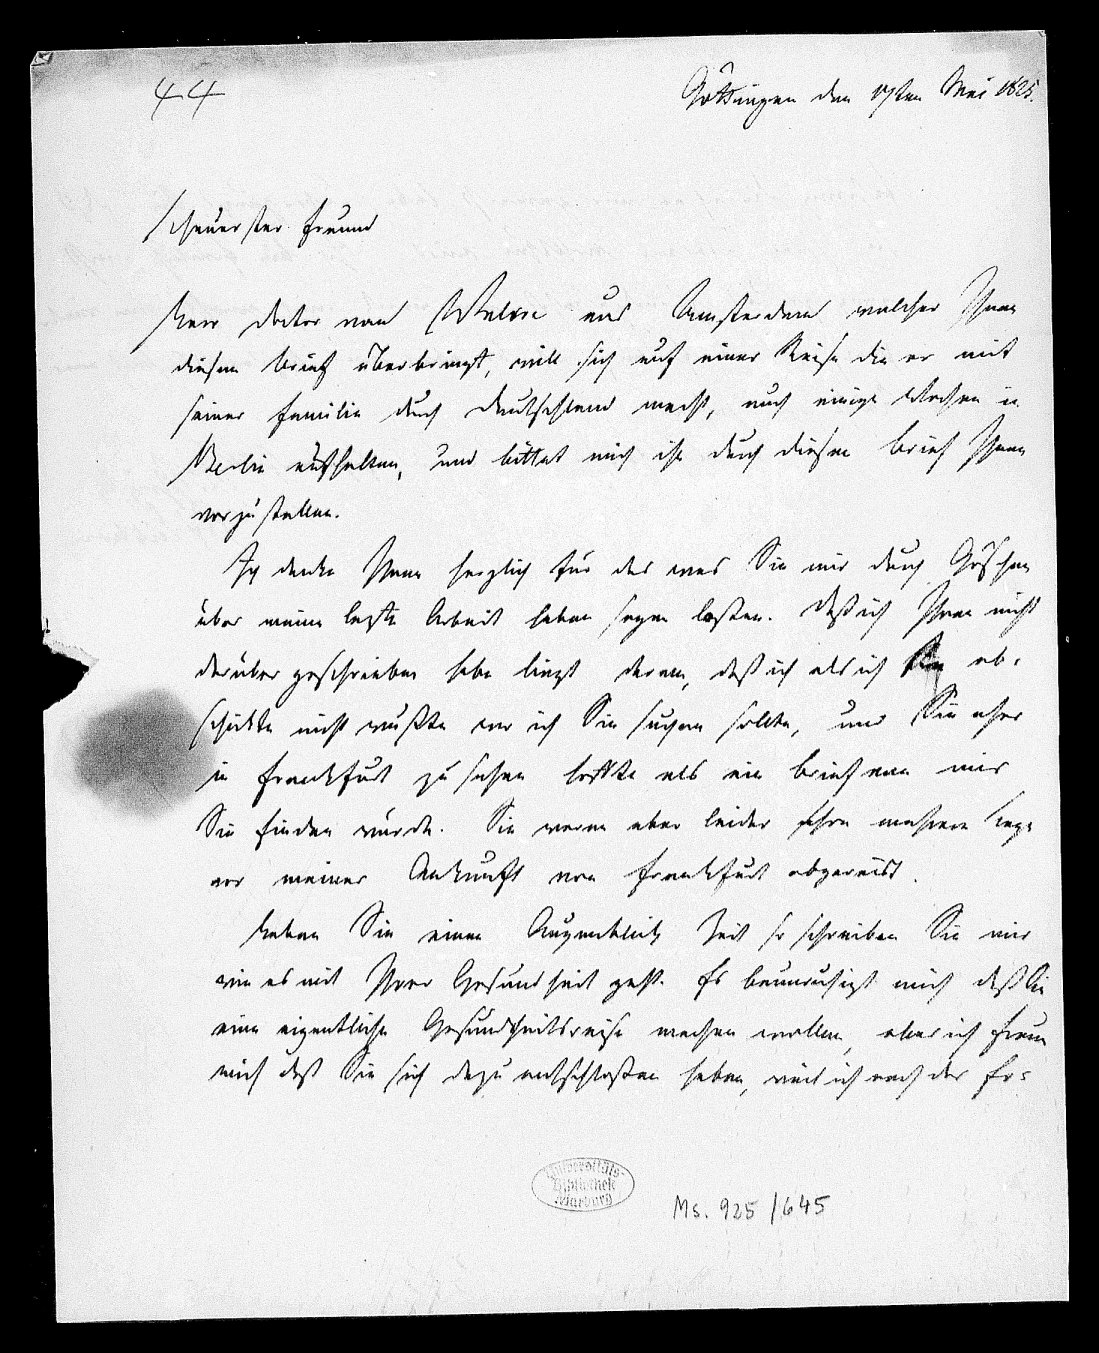 44
Göttingen den 17ten Mai 1825.
Theuerster Freund
Herr Doctor van aus Amsterdam welcher Ihnen
diesen Brief überbringt, will sich auf einer Reise die er mit
seiner Familie durch Deutschland macht, auch einige Wochen in
Berlin aufhalten, und bittet mich ihn durch diesen Brief Ihnen
vorzustellen.
Ich danke Ihnen herzlich für das was Sie mir durch Göschen
über meine lezte Arbeit haben sagen lassen. Daß ich Ihnen nicht
darüber geschrieben habe liegt daran, daß ich als ich sie ab-
schickte nicht wußte wo ich Sie suchen sollte, und Sie eher
in Frankfurt zu sehen hoffte als ein Brief von mir
Sie finden würde. Sie waren aber leider schon mehrere Tage
vor meiner Ankunft von Frankfurt abgereist.
Haben Sie einen Augenblick Zeit so schreiben Sie mir
wie es mit Ihrer Gesundheit geht. Es beunruhigt mich daß Sie
eine eigentliche Gesundheitsreise machen wollen, aber ich freue
mich daß Sie sich dazu entschlossen haben, weil ich nach der Er-
Universitäts-
Bibliothek
Marburg
Ms. 925/645